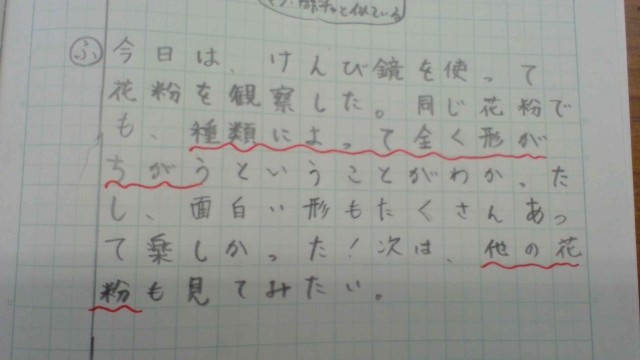 と似ている
ふ 今日は、けんび鏡を使って
花粉を観察した。同じ花粉で
も、種類によって全く形が
ちがうということがわかった
し、面白い形もたくさんあっ
て楽しかった!次は、他の花
粉も見てみたい。